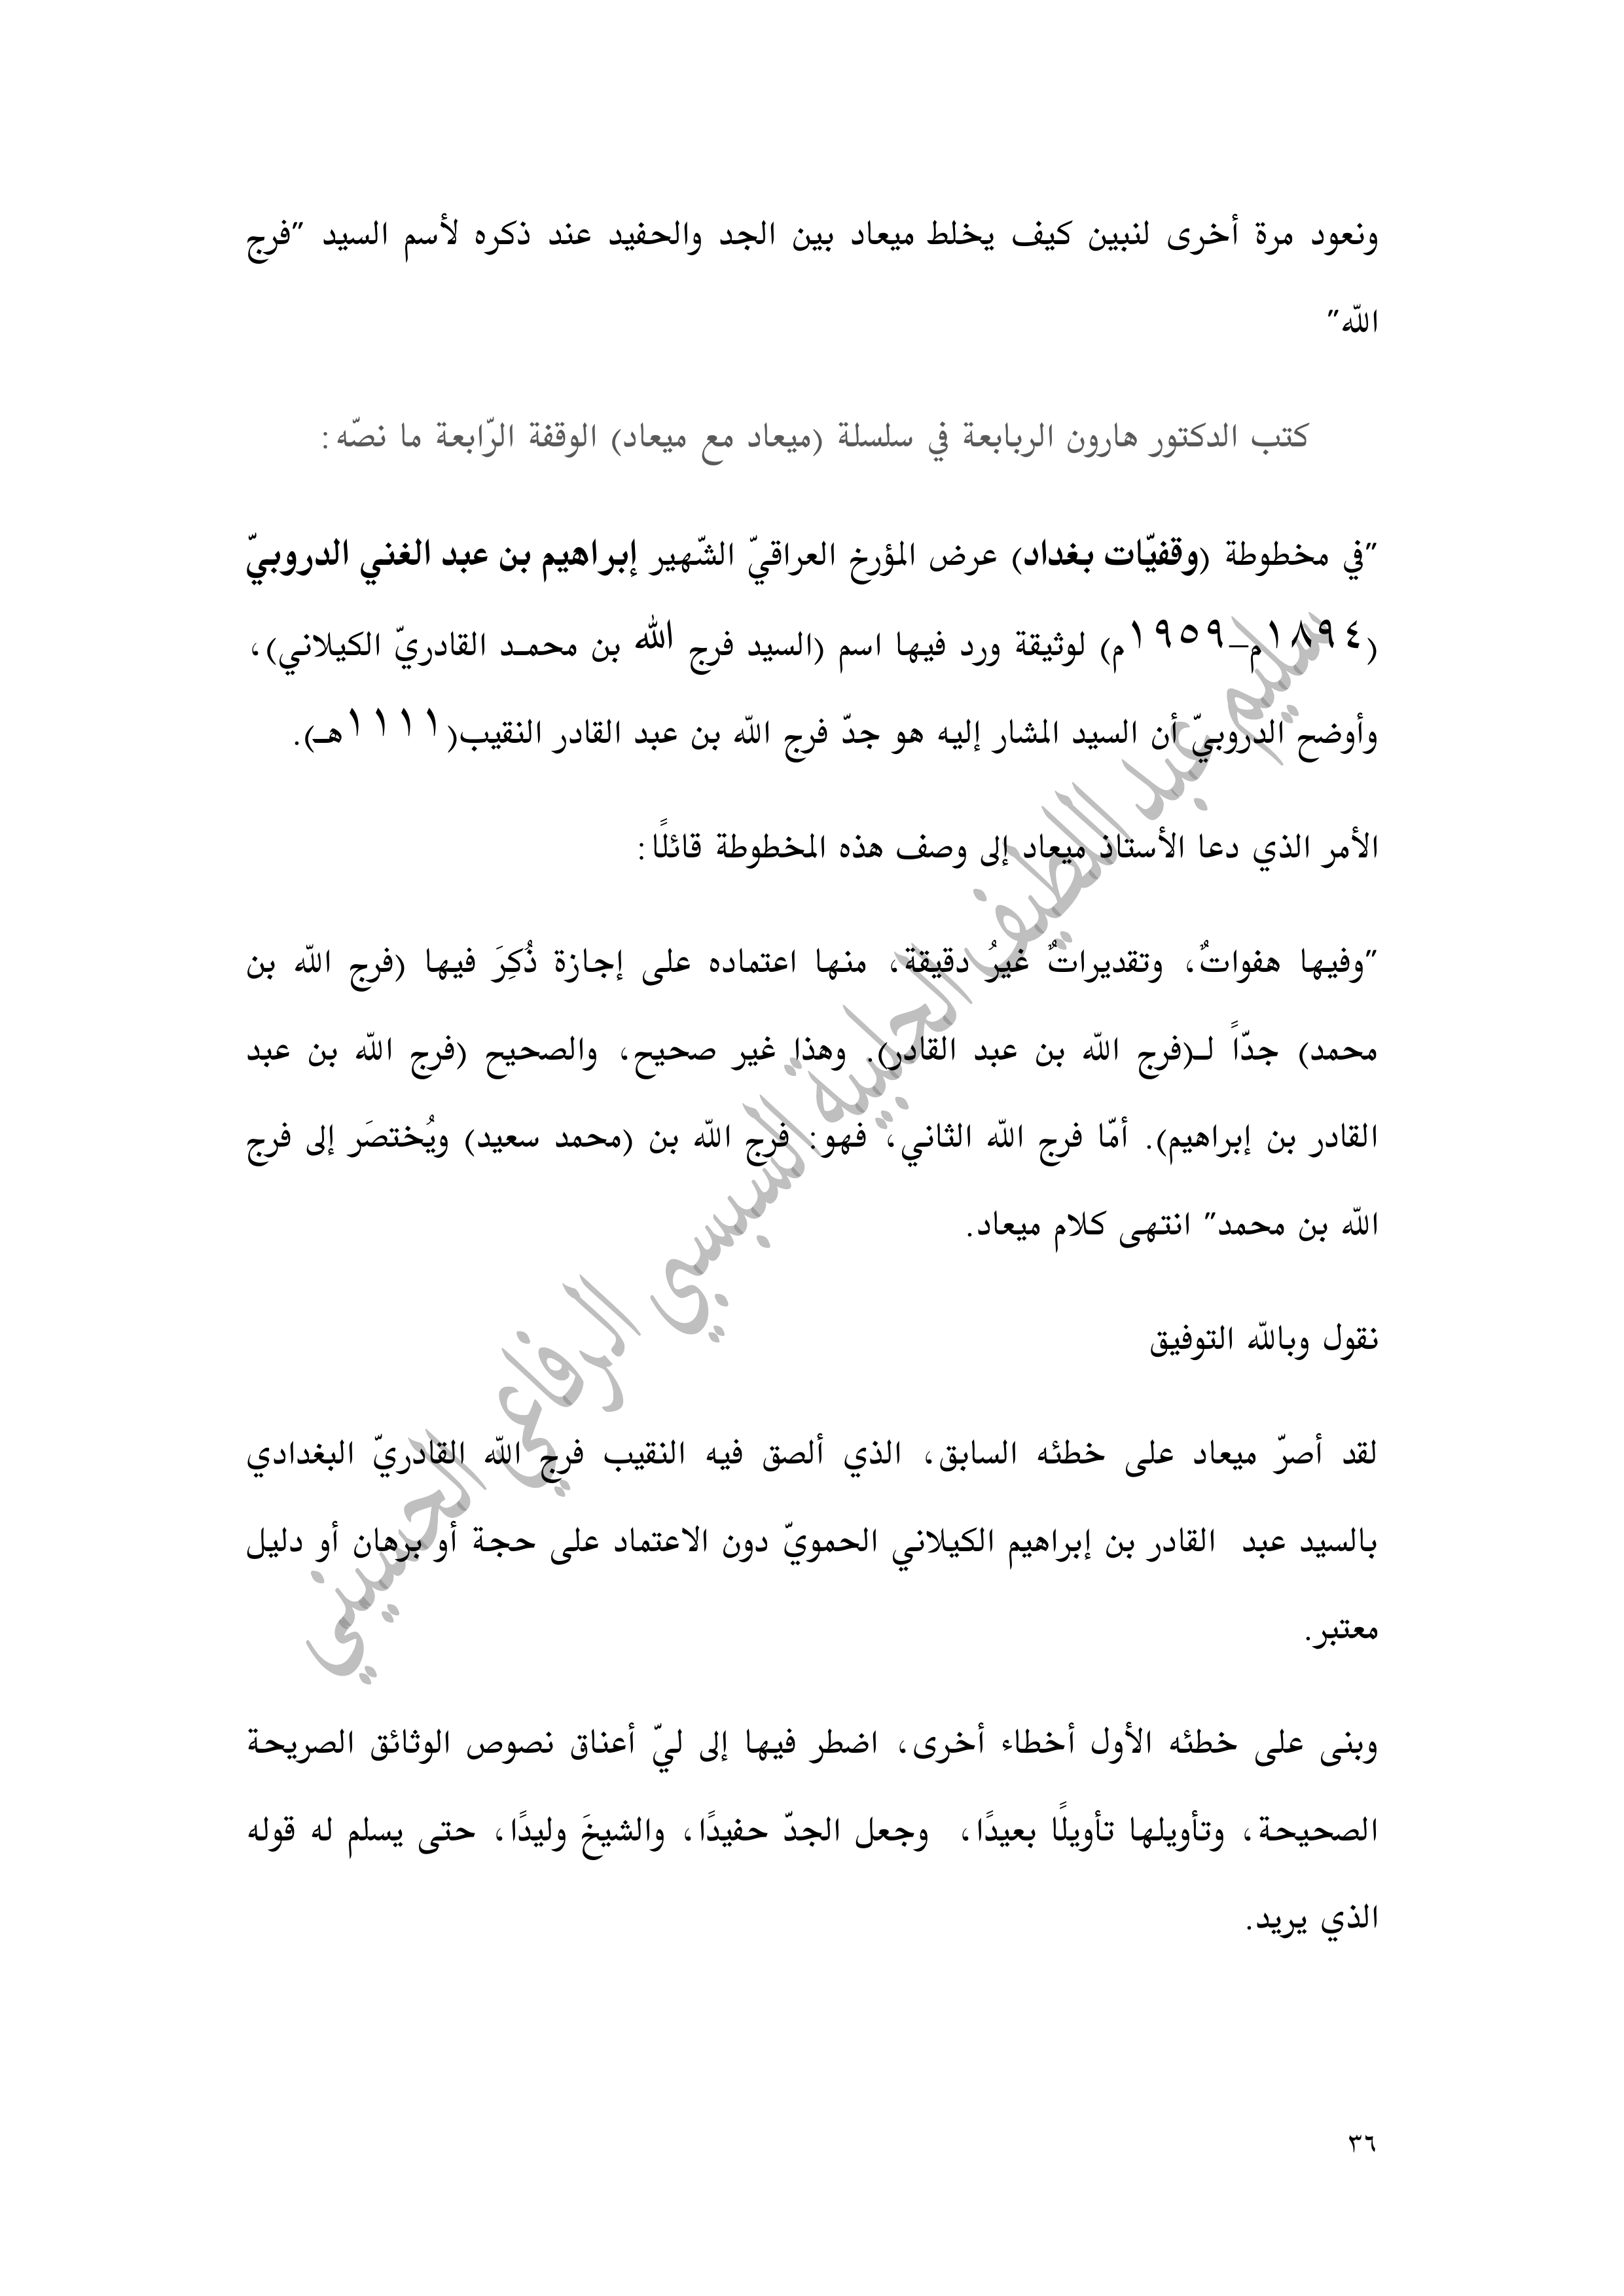 ونعود مرة أخرى لنبين كيف يخلط ميعاد بين الجد والحفيد عند ذكره لأسم السيد "فرج
الله"
كتب الدكتور هارون الربابعة في سلسلة (ميعاد مع ميعاد) الوقفة الرّابعة ما نصّه:
"في مخطوطة (وقفيّات بغداد) عرض المؤرخ العراقيّ الشّهير إبراهيم بن عبد الغني الدروبيّ
(١٨٩٤م–١٩٥٩م) لوثيقة ورد فيها اسم (السيد فرج الله بن محمـد القادريّ الكيلاني)،
وأوضح الدروبيّ أن السيد المشار إليه هو جدّ فرج الله بن عبد القادر النقيب(١١١١هـ).
الأمر الذي دعا الأستاذ ميعاد إلى وصف هذه المخطوطة قائلًا:
"وفيها هفواتٌ، وتقديراتٌ غيرُ دقيقة، منها اعتماده على إجازة ذُكِرَ فيها (فرج الله بن
محمد) جدّاً لـ(فرج الله بن عبد القادر). وهذا غير صحيح، والصحيح (فرج الله بن عبد
القادر بن إبراهيم). أمّا فرج الله الثاني، فهو: فرج الله بن (محمد سعيد) ويُختصَر إلى فرج
الله بن محمد" انتهى كلام ميعاد.
نقول وبالله التوفيق
لقد أصرّ ميعاد على خطئه السابق، الذي ألصق فيه النقيب فرج الله القادريّ البغدادي
بالسيد عبد القادر بن إبراهيم الكيلاني الحمويّ دون الاعتماد على حجة أو برهان أو دليل
معتبر.
وبنى على خطئه الأول أخطاء أخرى، اضطر فيها إلى ليّ أعناق نصوص الوثائق الصريحة
الصحيحة، وتأويلها تأويلًا بعيدًا، وجعل الجدّ حفيدًا، والشيخَ وليدًا، حتى يسلم له قوله
الذي يريد.
٣٦
سليم عبد اللطيف الحلبية السبسبي الرفاعي الحسيني